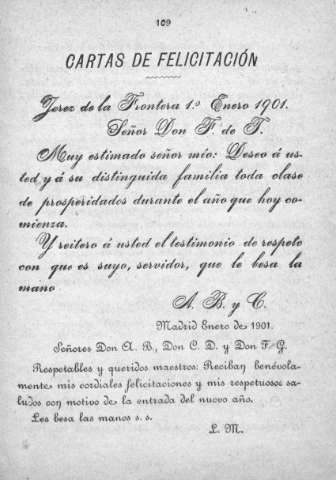 109
CARTAS DE FELICITACIÓN
Jerez de la Frontera 1.º Enero 1901.
Señor Don F. de T.
Muy estimado señor mío: Deseo á us-
ted y á su distinguida familia toda clase
de prosperidades durante el año que hoy co-
mienza.
Y reitero á usted el testimonio de respeto
con que es suyo, servidor, que le besa la
mano
A. B. y C.
Madrid Enero de 1901.
Señores Don A. B., Don C. D. y Don F. G.
Respetables y queridos maestros: Reciban benévola-
mente mis cordiales felicitaciones y mis respetuosos sa-
ludos con motivo de la entrada del nuevo año.
Les besa las manos s. s.
L. M.